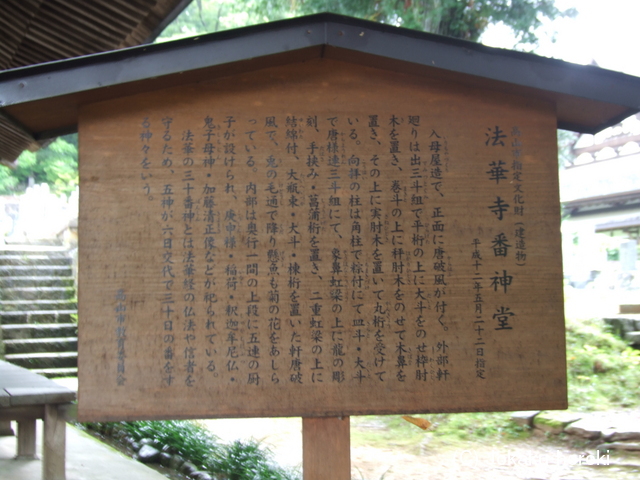 高山市指定文化財(建造物)
法華寺番神堂
平成十二年五月二十二日指定
入母屋造で、正面に唐破風が付く。外部軒
廻りは出三斗組で平桁の上に大斗をのせ枠肘
木を置き、巻斗の上に秤肘木をのせて木鼻を
置き、その上に実肘木を置いて丸桁を受けて
いる。向拝の柱は角柱で粽付にて皿斗・大斗
で唐様連三斗組にて、象鼻虹梁の上に龍の彫
刻、手挟み・菖蒲桁を置き、二重虹梁の上に
結綿付、大瓶束・大斗・棟桁を置いた軒唐破
風で、兎の毛通で降り懸魚も菊の花をあしら
っている。内部は奥行一間の上段に五連の厨
子が設けられ、庚申様・稲荷・釈迦牟尼仏・
鬼子母神・加藤清正像などが祀られている。
法華の三十番神とは法華経の仏法や信者を
守るため、五神が六日交代で三十日の番をす
る神々をいう。
高山市教育委員会